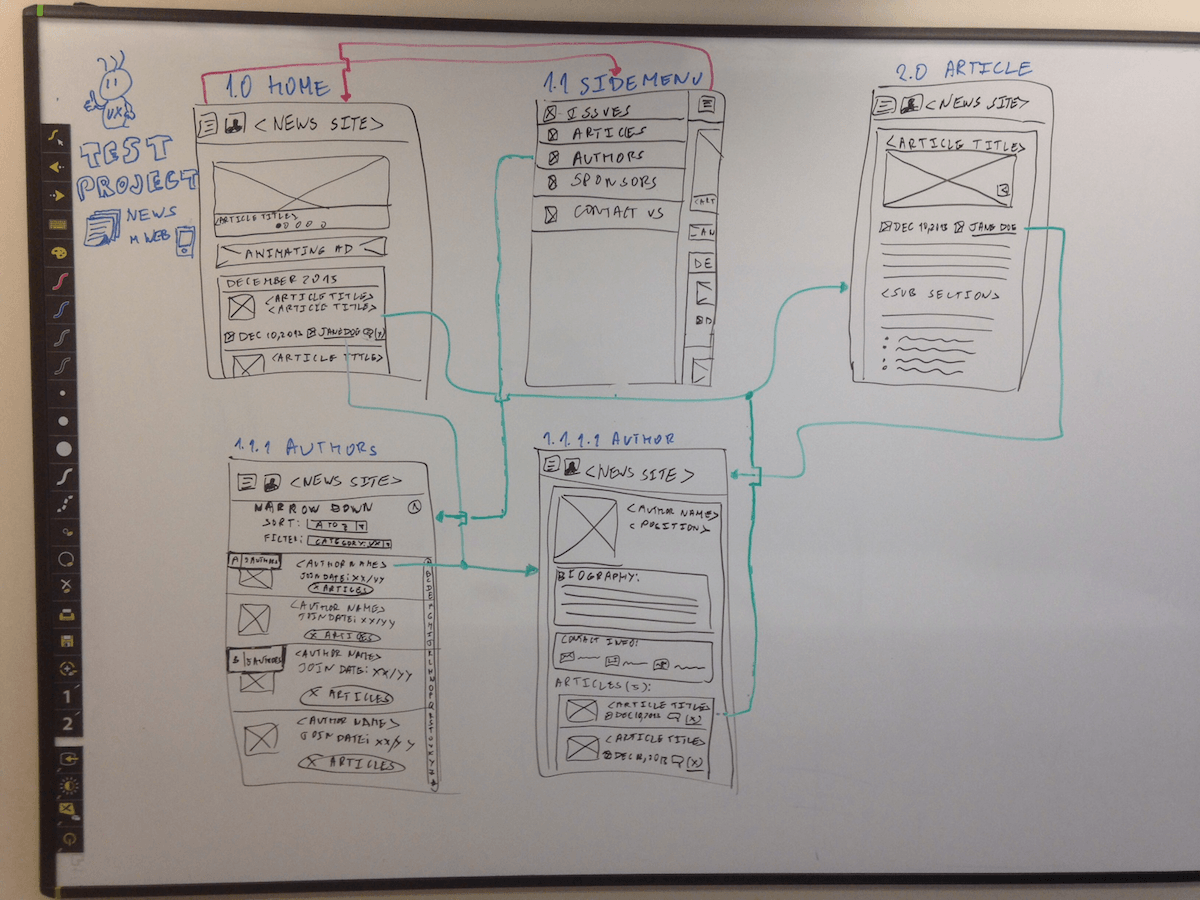 UX
TEST
PROJECT
NEWS
M WEB
1.0 HOME
<NEWS SITE>
<ARTICLE TITLE>
ANIMATING AD
DECEMBER 2013
<ARTICLE TITLE>
<ARTICLE TITLE>
DEC 10,2013 JANE DOE (X)
<ARTICLE TITLE>
1.1 SIDEMENU
ISSUES
ARTICLES
AUTHORS
SPONSORS
CONTACT US
<ART
JAN
DE
2.0 ARTICLE
<NEWS SITE>
<ARTICLE TITLE>
DEC 10,2013 JANE DOE
<SUB SECTION>
1.1.1 AUTHORS
<NEWS SITE>
NARROW DOWN
SORT: A TO Z
FILTER: CATEGORY: XX
A 3 AUTHORS
<AUTHOR NAME>
JOIN DATE: XX/YY
X ARTICLES
<AUTHOR NAME>
JOIN DATE: XX/YY
X ARTICLES
B 5 AUTHORS
<AUTHOR NAME>
JOIN DATE: XX/YY
X ARTICLES
<AUTHOR NAME>
JOIN DATE: XX/YY
X ARTICLES
1.1.1.1 AUTHOR
<NEWS SITE>
<AUTHOR NAME>
<POSITION>
BIOGRAPHY:
CONTACT INFO:
ARTICLES(S):
<ARTICLE TITLE>
DEC 10, 2013 (X)
<ARTICLE TITLE>
(X)
1
2